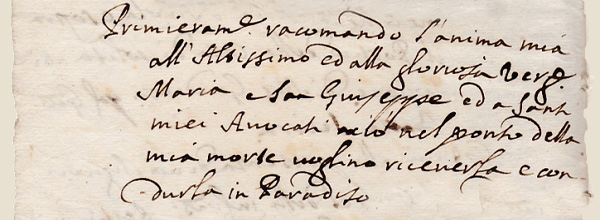 Primieram.e racomando l'anima mia
all'Altissimo ed alla gloriosa Verg.e
Maria e San Giuseppe ed a Santi
miei Avocati acciò nel ponto della
mia morte voglino riceverla e con
durla in Paradiso